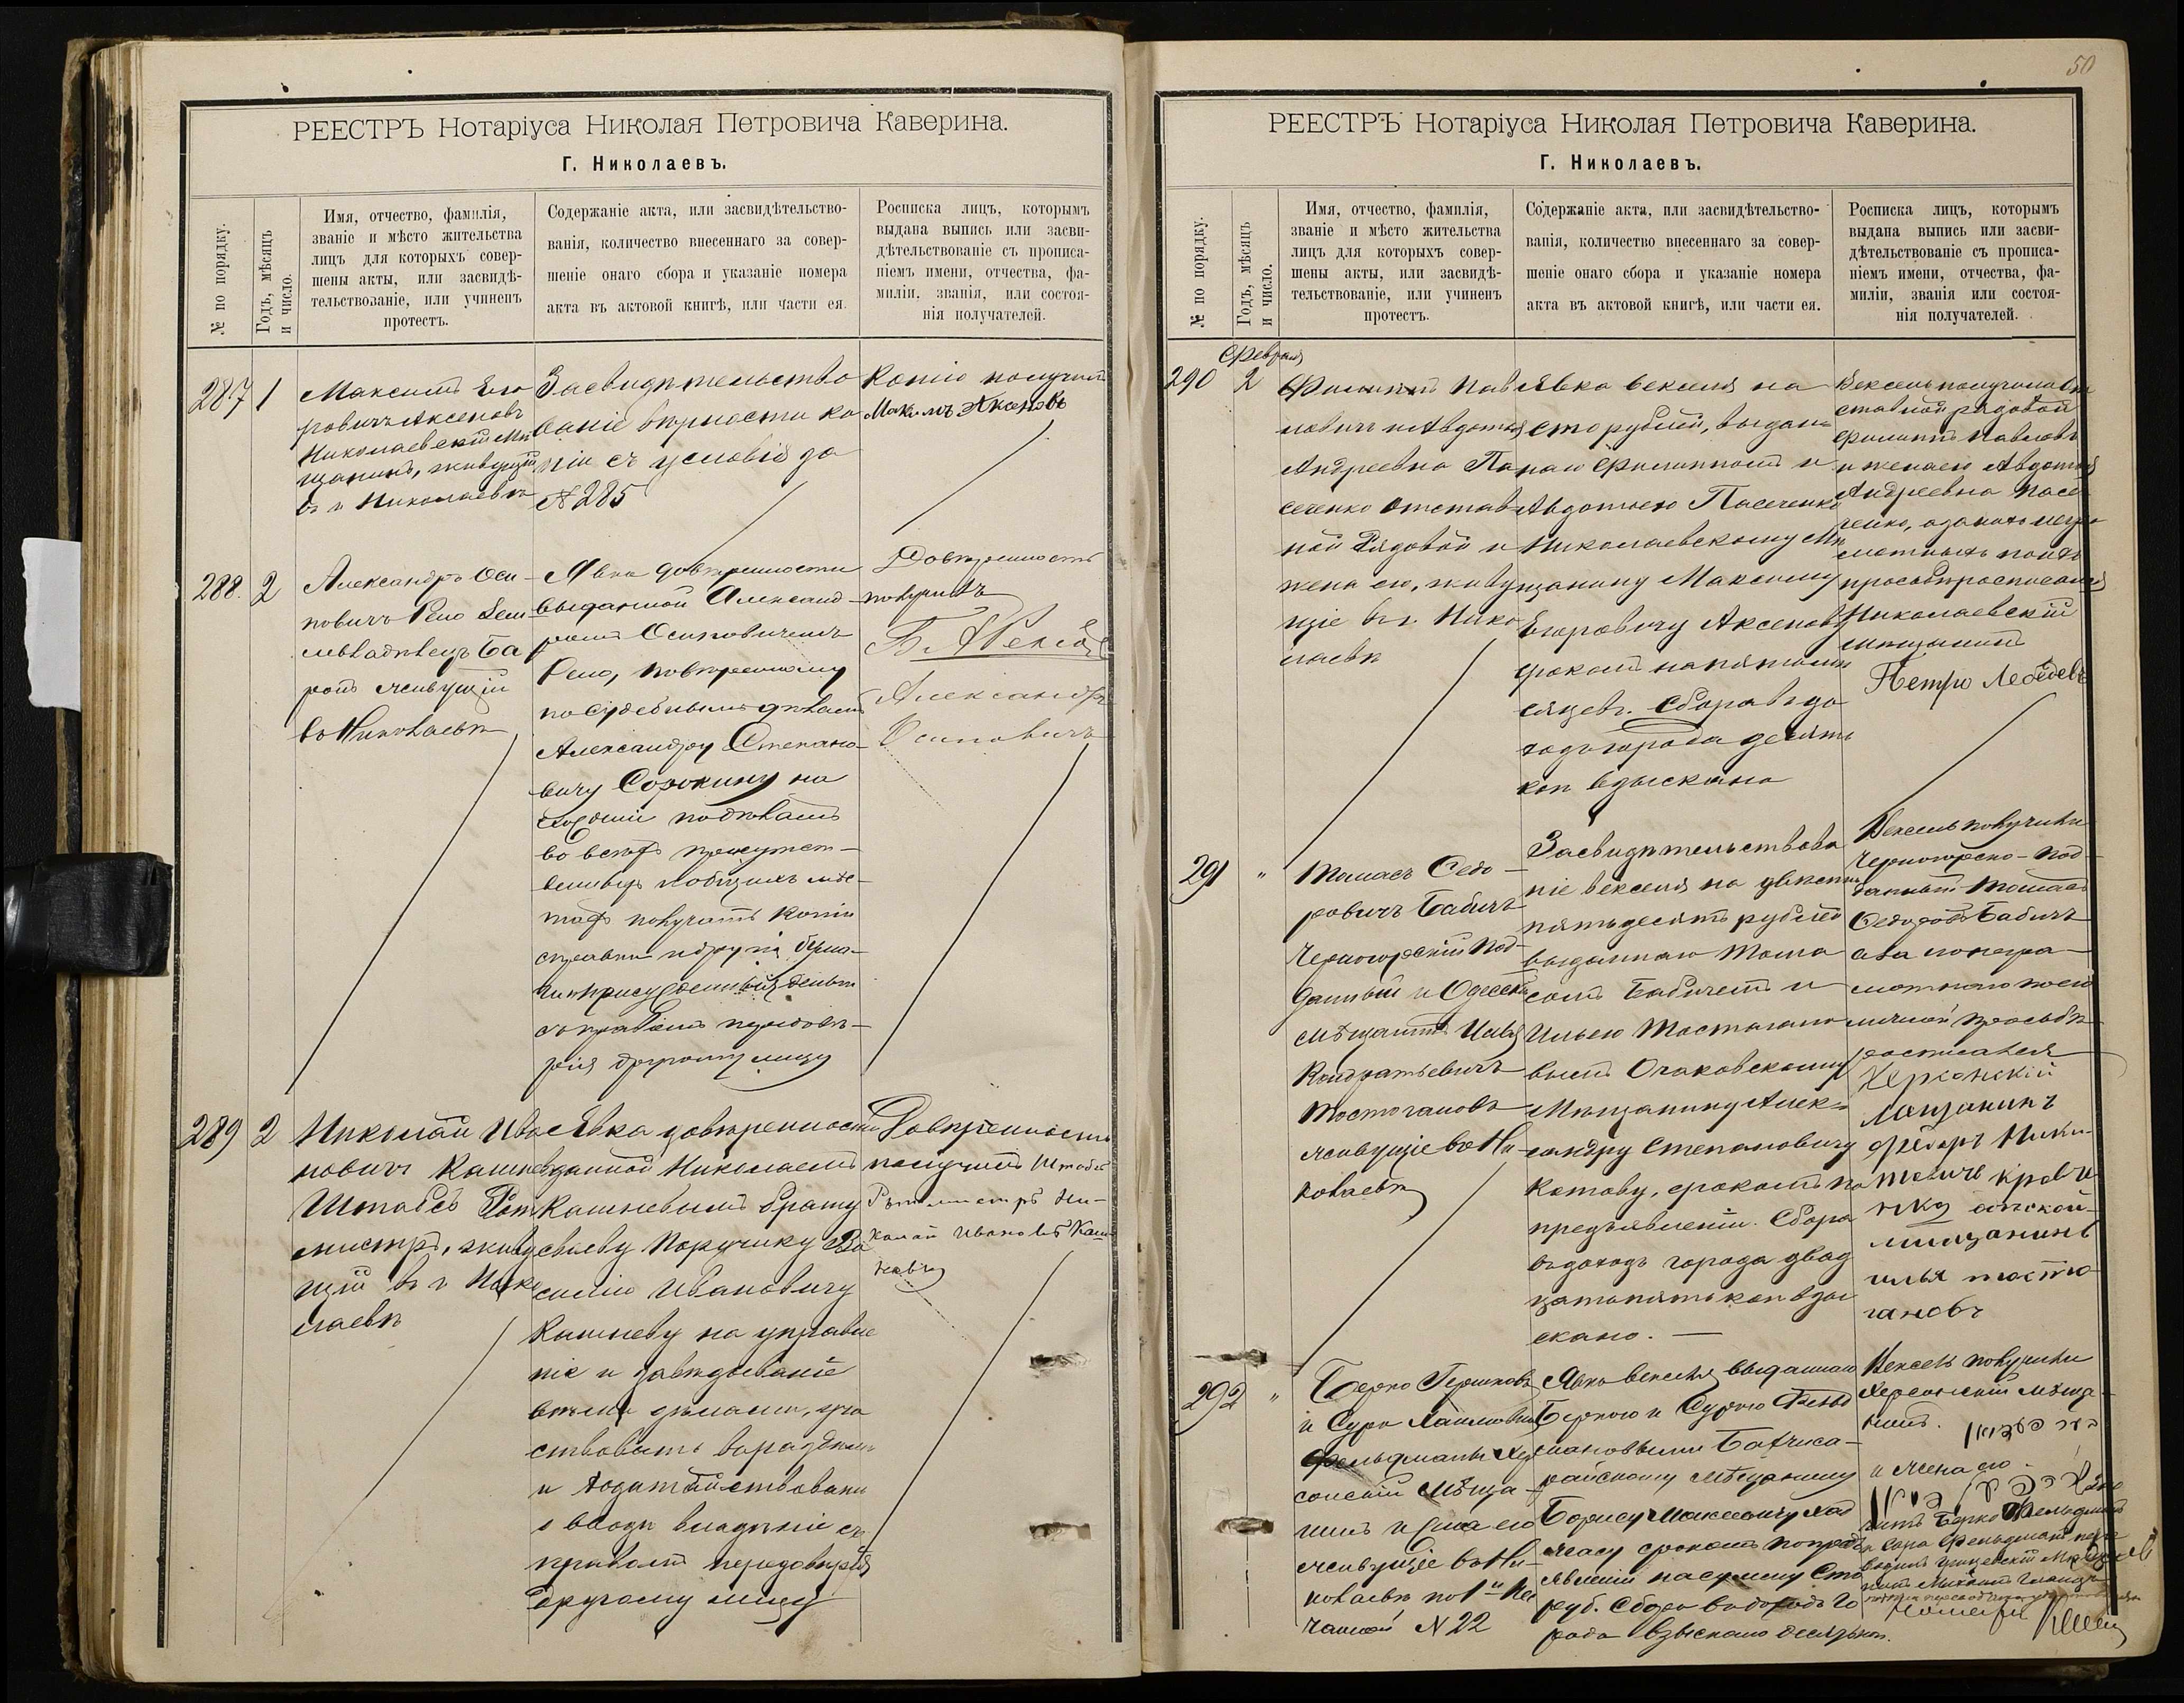 РЕЕСТРЪ Нотаріуса Николая Петровича Каверина.
Г. Николаевъ.
№ по порядку.
Годъ, мѣсяцъ
и число.
Имя, отчество, фамилія,
званіе и мѣсто жительства
лицъ для которыхъ совер-
шены акты, или засвидѣ-
тельствованіе, или учиненъ
протестъ.
Содержаніе акта, или засвидѣтельство-
ванія, количество внесеннаго за совер-
шеніе онаго сбора и указаніе номера
акта въ актовой книгѣ, или части ея.
Росписка лицъ, которымъ
выдана выпись или засви-
дѣтельствованіе съ прописа-
ніемъ имени, отчества, фа-
миліи, званія, или состоя-
нія получателей.
287
1
Максимъ Его
ровичъ Аксеновъ
Николаевскій Мѣ
щанинъ, живущій
въ г Николаевѣ
Засвидѣтельство
ваніе вѣрности ко
піи съ условія за
№ 285
Копію получилъ
Максимъ Аксеновъ
288.
2
Александръ Оси-
повичъ Рено Зем-
левладѣлецъ Ба
ронъ живущій
въ Николаевѣ
Явка довѣренности
выданной Александ-
ромъ Осиповичемъ
Рено, повѣренному
по судебнымъ дѣламъ
Александру Степано-
вичу Сорокину на
хожденіе по дѣламъ
во всѣхъ присутст-
венныхъ и общихъ мѣс-
тахъ получать копіи
справки и другія бума-
ги и присужденныя деньги
съ правомъ передовѣ-
рія другому лицу
Довѣренность
получилъ
Александръ
Осиповичъ
289
2
Николай Ива
новичъ Кашневъ
Штабсъ Рот
мистръ, живу
щій въ г Нико
лаевѣ
Явка довѣренности
данной Николаемъ
Кашневымъ брату
своему Поручику Ва
силію Ивановичу
Кашневу на управле
ніе и завѣдываніе
всѣми дѣлами, уча
ствовать въ раздѣлѣ
и ходатайствовать
о вводѣ владѣніе съ
правомъ передовѣрія
другому лицу
Довѣренность
получилъ Штабсъ
Ротмистръ Ни-
колай Ивановъ Каш
невъ
50
РЕЕСТРЪ Нотаріуса Николая Петровича Каверина.
Г. Николаевъ.
№ по порядку.
Годъ, мѣсяцъ
и число.
Имя, отчество, фамилія,
званіе и мѣсто жительства
лицъ для которыхъ совер-
шены акты, или засвидѣ-
тельствованіе, или учиненъ
протестъ.
Содержаніе акта, или засвидѣтельство-
ванія, количество внесеннаго за совер-
шеніе онаго сбора и указаніе номера
акта въ актовой книгѣ, или части ея.
Росписка лицъ, которымъ
выдана выпись или засви-
дѣтельствованіе съ прописа-
ніемъ имени, отчества, фа-
миліи, званія или состоя-
нія получателей.
Февраля
290
2
Филиппъ Пав
ловичъ и Авдотья
Андреевна Па
сеченко отстав
ной Рядовой и
жена его, живу
щіе въ г. Нико
лаевѣ
Явка векселя на
сто рублей, выдан
наго Филиппомъ и
Авдотьею Пасеченко
Николаевскому Мѣ
щанину Максиму
Егоровичу Аксенову
срокомъ на пять мѣ
сяцевъ. Сбора въ до
ходъ города десять
коп взыскано
Вексель получили от
ставной рядовой
Филиппъ Павловъ
и жена его Авдотья
Андреевна Пасе
ченко, а за нихъ негра
мотныхъ по ихъ
просьбѣ расписался
Николаевскій
мѣщанинъ
Петръ Лебедевъ
291
"
Томасъ Седо-
ровичъ Бабичъ
Черногорскій под-
данный и Одесскій
мѣщанинъ Илья
Кондратьевичъ
Тостогановъ
живущіе въ Ни-
колаевѣ
Засвидѣтельствова
ніе векселя на двѣсти
пятьдесятъ рублей
выданнаго Тома
сомъ Бабичемъ и
Ильею Тостогано
вымъ Очаковскому
Мѣщанину Алек-
сандру Степановичу
Котову, срокомъ по
предъявленіи. Сбора
въ доходъ города двад
цать пять коп взы
скано.
Вексель получили
Черногорско-под-
данный Томасъ
Седоровъ Бабичъ
а за негра-
мотнаго по его
личной просьбѣ
росписался
Херсонскій
Мещанинъ
Федоръ Ники-
мещанинъ
илья тосто
гановъ
292
"
Берко Гершковъ
и Сура Хаимовна
Фельдманы Хер
сонскій Мѣща-
нинъ и жена его
живущіе въ Ни-
колаевѣ по 1й Пес
чаной № 22
Явка векселя выданнаго
Беркою и Сурою Фельд
мановыми Бахчиса-
райскому мѣщанину
Борису Моисеевичу Ход
жасу срокомъ по предъ
явленіи на сумму Сто
руб. Сбора въ доходъ го
рода взыскано десять коп.
Вексель получили
Херсонскій мѣща-
нинъ.
и жена его
Берко Фельдманъ
и Сора Фельдманъ